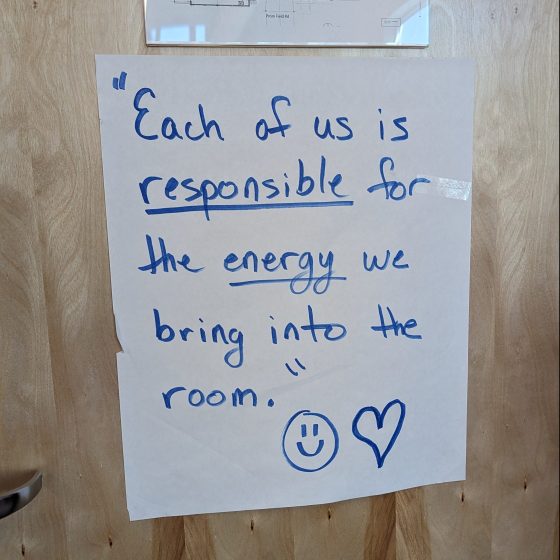 "Each of us is
responsible for
the energy we
bring into the
room."